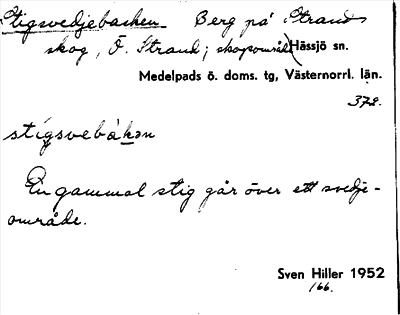 Stigsvedjebacken. Berg på Strands
skog, Ö. Strand; skogsområde) Hässjö sn.
Medelpads ö. doms. tg, Västernorrl. län.
378.
stígsvebàkən
En gammal stig går över ett svedje-
område.
Sven Hiller 1952
166.